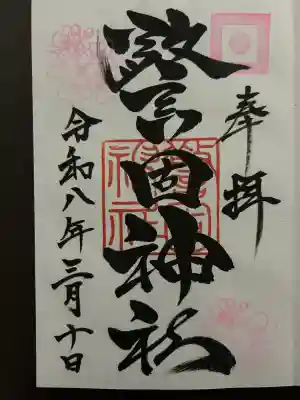 奉拝
警固神社
令和八年三月十日